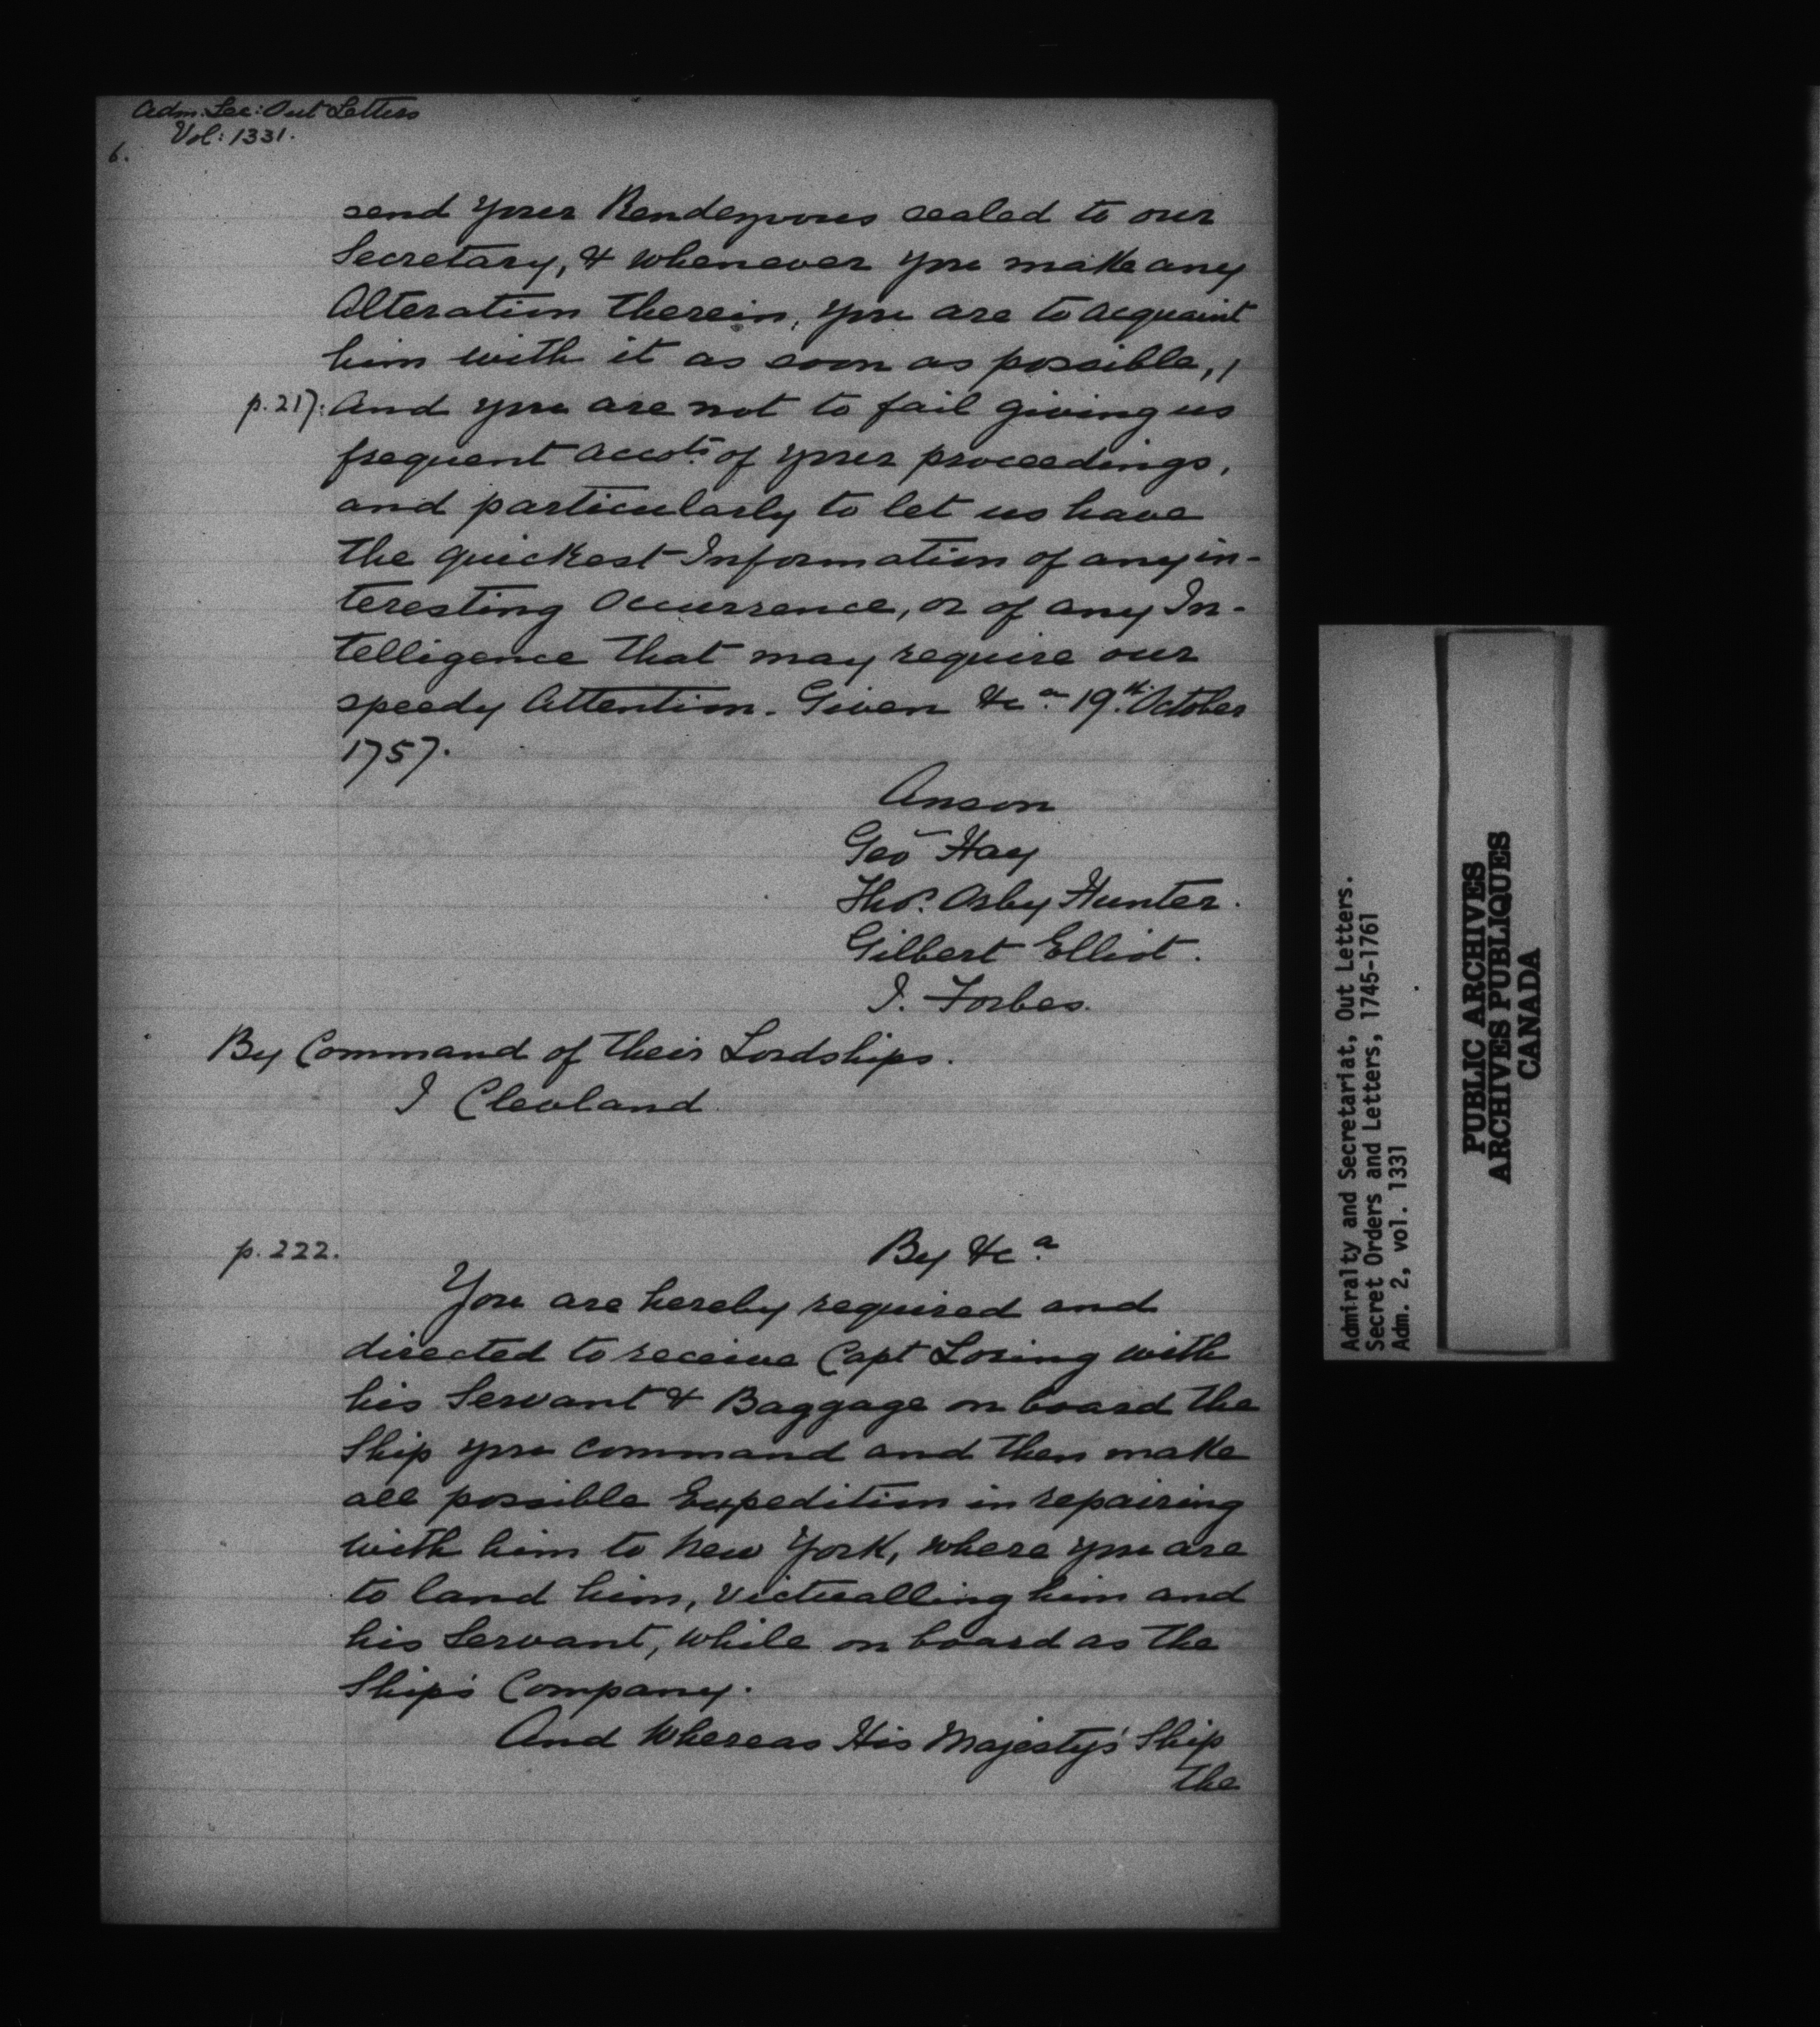 Adm. Sec: Out Letters
Vol: 1331.
6.
send your Rendezvous sealed to our
Secretary, & whenever you make any
Alteration therein, you are to acquaint
him with it as soon as possible, /
p. 217. And you are not to fail giving us
frequent Accots. of your proceedings,
and particularly to let us have
the quickest Information of any in-
teresting Occurrence, or of any In-
telligence that may require our
speedy Attention. Given &ca. 19th. October
1757.
Anson
Geo Hay
Thos. Orby Hunter.
Gilbert Elliot.
J. Forbes.
By Command of their Lordships.
J Clevland
p. 222.
By &ca.
You are hereby required and
directed to receive Capt Loring with
his Servant & Baggage on board the
Ship you command and then make
all possible Expedition in repairing
with him to New York, where you are
to land him, Victualling him and
his Servant, while on board as the
Ship's Company.
And Whereas His Majesty's Ship
the
Admiralty and Secretariat, Out Letters.
Secret Orders and Letters, 1745-1761
Adm. 2, vol. 1331
PUBLIC ARCHIVES
ARCHIVES PUBLIQUES
CANADA